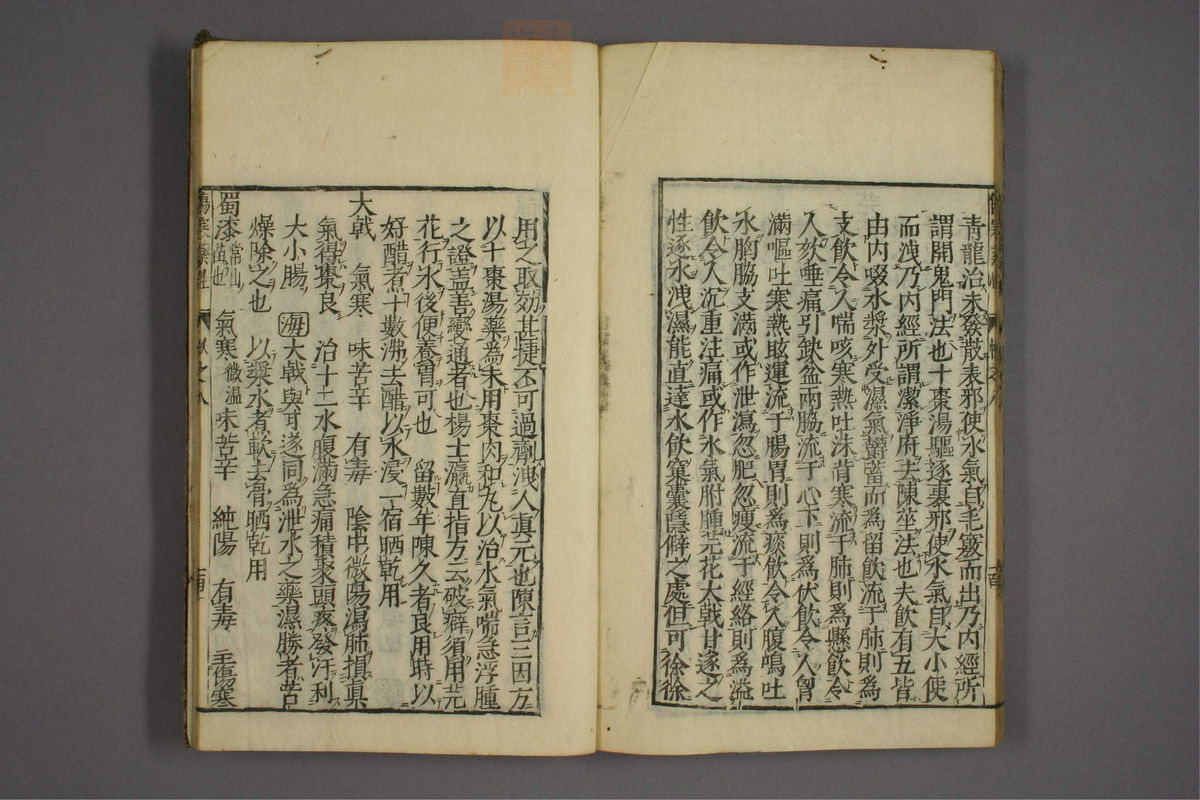 青龍治未發散表邪使水氣自毛竅而出乃内經所
謂開鬼門法也十棗湯驅逐裏邪使水氣自大小便
而洩乃内經所謂潔淨府去陳莝法也夫飲有五皆
由内啜水漿外受濕氣欝蓄而為留飲流于肺則為
支飲令人喘咳寒熱吐沫背寒流于肺則為懸飲令
人欬唾痛引缺盆兩脇流于心下則為伏飲令人胷
滿嘔吐寒熱眩運流于腸胃則為痰飲令人腹鳴吐
水胸脇支滿或作泄瀉忽肥忽瘦流于經絡則為溢
飲令人沉重注痛或作水氣胕腫芫花大戟甘遂之
性逐水洩濕能直達水飲窠囊隱僻之處但可徐徐
用之取効甚捷不可過劑洩人眞元也陳言三因方
以十棗湯藥為末用棗肉和丸以治水氣喘急浮腫
之證盖善變通者也楊士瀛直指方云破癖須用芫
花行水後便養胃可也 留數年陳久者良用時以
好醋煮十數沸去醋以水浸一宿晒乾用
大戟 氣寒 味苦辛 有毒 陰中微陽瀉肺損眞
氣得棗良 治十二水腹滿急痛積聚頭痰發汗利
大小腸 海大戟與甘遂同為泄水之藥濕勝者苦
燥除之也 以漿水煮軟去骨晒乾用
蜀漆常山苗也 氣寒微温味苦辛 純陽 有毒